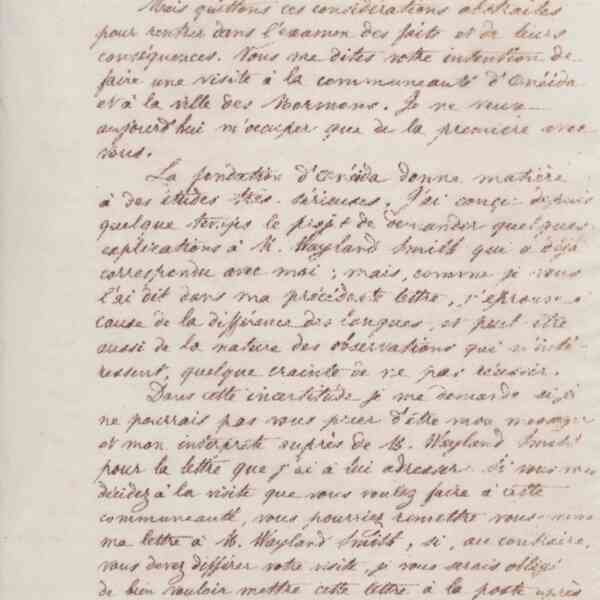 Mais quittons ces considérations abstraites
pour rentrer dans l'examen des faits et de leurs
conséquences. Vous me dites votre intention de
faire une visite à la communauté d'Onéida
et à la ville des Mormons. Je ne veux
aujourd'hui m'occuper que de la première avec
vous.
La fondation d'Onéida donne matière
à des études très sérieuses. J'ai conçu depuis
quelque temps le projet de demander quelques
explications à M. Wayland Smith qui a déjà
correspondu avec moi ; mais, comme je vous
l'ai dit dans ma précédente lettre, j'éprouve à
cause de la différence des langues, et peut être
aussi de la nature des observations qui m'inté-
ressent, quelque crainte de ne pas réussir.
Dans cette incertitude je me demande si je
ne pourrais pas vous prier d'être mon messager
et mon interprète auprès de M. Wayland Smith
pour la lettre que j'ai à lui adresser. Si vous vous
décidez à la visite que vous voulez faire à cette
communauté, vous pourriez remettre vous-même
ma lettre à M. Wayland Smith, si, au contraire,
vous devez différer votre visite, je vous serais obligé
de bien vouloir mettre cette lettre à la poste après